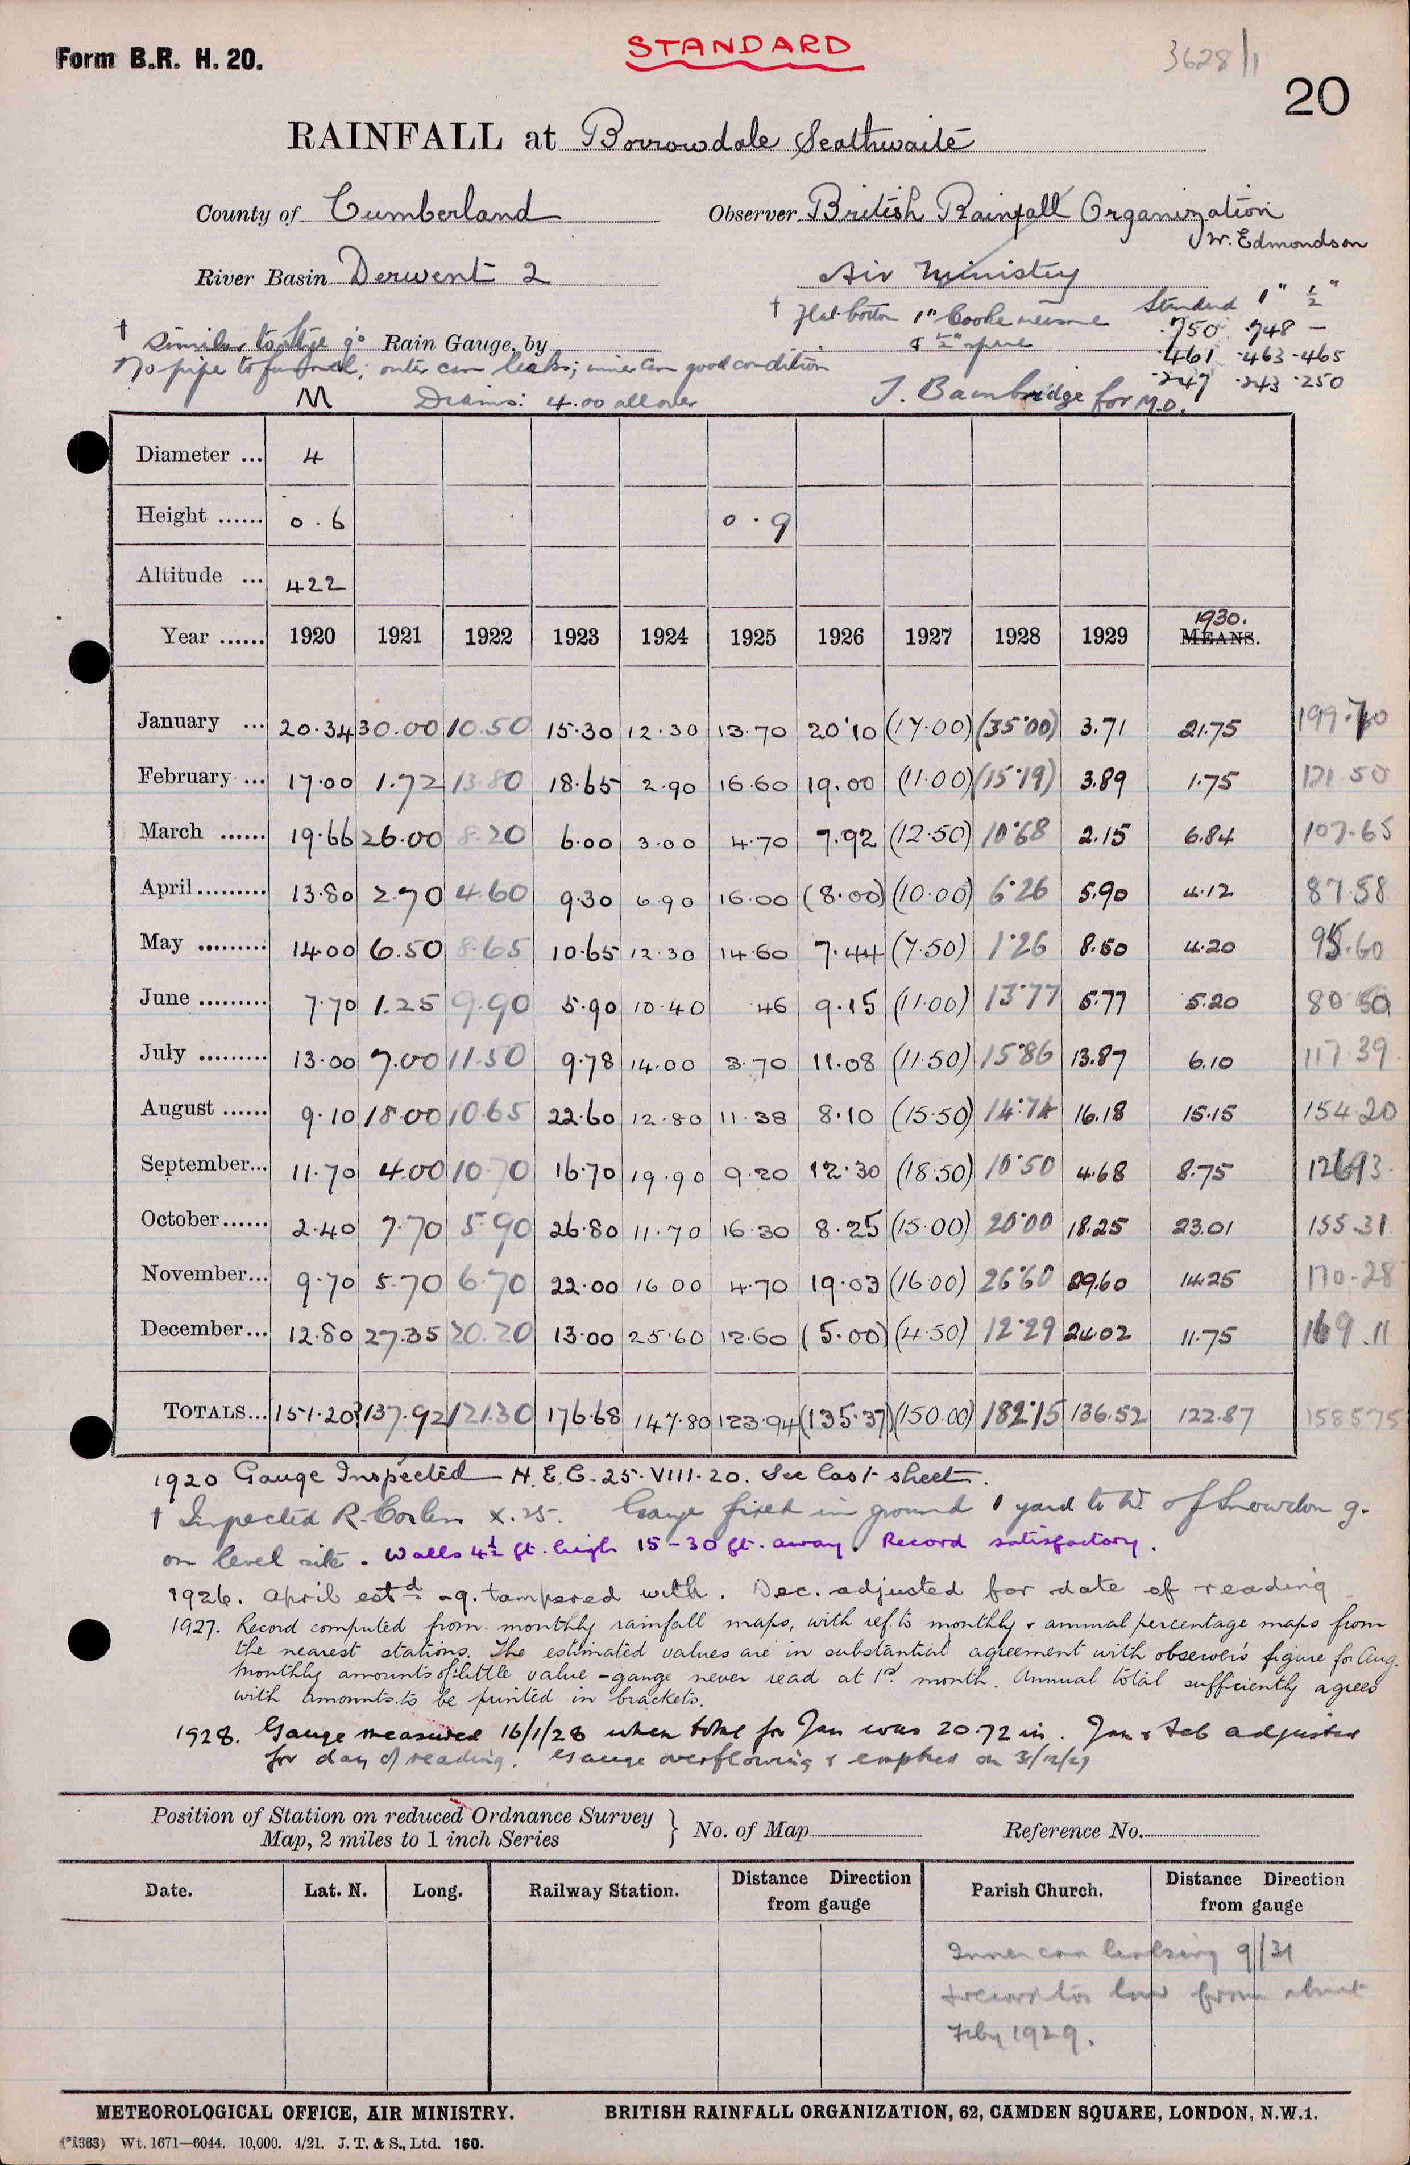 Form B.R. H. 20.
STANDARD
3628/1
20
RAINFALL at Borrowdale Seathwaite
County of Cumberland
Observer British Rainfall Organization
W. Edmondson
River Basin Derwent 2
Air Ministry
† Flat bottom 1" Cooke measure
Standard 1" ½"
.750 .748 —
.461 .463 .465
.247 .243 .250
† Similar to Stye g. Rain Gauge, by
& ½" spare
No pipe to funnel; outer can leaks; inner can good condition
M Diams: 4.00 all over
J. Bainbridge for M.O.
Diameter ... 4
Height ...... 0.6 0.9
Altitude ... 422
Year ...... 1920 1921 1922 1923 1924 1925 1926 1927 1928 1929 1930. MEANS.
January ... 20.34 30.00 10.50 15.30 12.30 13.70 20.10 (17.00) (35.00) 3.71 21.75 199.70
February ... 17.00 1.72 13.80 18.65 2.90 16.60 19.00 (11.00) (15.19) 3.89 1.75 121.50
March ...... 19.66 26.00 8.20 6.00 3.00 4.70 7.92 (12.50) 10.68 2.15 6.84 107.65
April ......... 13.80 2.70 4.60 9.30 6.90 16.00 (8.00) (10.00) 6.26 5.90 4.12 87.58
May ......... 14.00 6.50 8.65 10.65 12.30 14.60 7.44 (7.50) 1.26 8.50 4.20 95.60
June ......... 7.70 1.25 9.90 5.90 10.40 .46 9.15 (11.00) 13.77 5.77 5.20 80.50
July ......... 13.00 7.00 11.50 9.78 14.00 3.70 11.08 (11.50) 15.86 13.87 6.10 117.39
August ...... 9.10 18.00 10.65 22.60 12.80 11.38 8.10 (15.50) 14.74 16.18 15.15 154.20
September... 11.70 4.00 10.70 16.70 19.90 9.20 12.30 (18.50) 10.50 4.68 8.75 126.93
October...... 2.40 7.70 5.90 26.80 11.70 16.30 8.25 (15.00) 20.00 18.25 23.01 155.31
November... 9.70 5.70 6.70 22.00 16.00 4.70 19.03 (16.00) 26.60 29.60 14.25 170.28
December... 12.80 27.35 20.20 13.00 25.60 12.60 (5.00) (4.50) 12.29 24.02 11.75 169.11
TOTALS... 151.20 137.92 121.30 176.68 147.80 123.94 (135.37) (150.00) 182.15 136.52 122.87 1585.75
1920 Gauge Inspected — H.E.C. 25.VIII.20. See last sheet.
† Inspected R. Corless X.25. Gauge fixed in ground 1 yard to W of Snowdon g.
on level site. Walls 4½ ft. high 15–30 ft. away. Record satisfactory.
1926. April estd – g. tampered with. Dec. adjusted for date of reading
1927. Record computed from monthly rainfall maps, with ref. to monthly & annual percentage maps from
the nearest stations. The estimated values are in substantial agreement with observer's figure for Aug.
Monthly amounts of little value – gauge never read at 1st month. Annual total sufficiently agrees
with amounts to be printed in brackets.
1928. Gauge measured 16/1/28 when total for Jan was 20.72 in. Jan & Feb adjusted
for day of reading. Gauge overflowing & emptied on 31/12/27
Position of Station on reduced Ordnance Survey Map, 2 miles to 1 inch Series } No. of Map Reference No.
Date. Lat. N. Long. Railway Station. Distance Direction from gauge Parish Church. Distance Direction from gauge
Inner can leaking 9/31
& record too low from about
Feby 1929.
METEOROLOGICAL OFFICE, AIR MINISTRY. BRITISH RAINFALL ORGANIZATION, 62, CAMDEN SQUARE, LONDON, N.W.1.
(*1363) Wt. 1671—6044. 10,000. 4/21. J. T. & S., Ltd. 160.